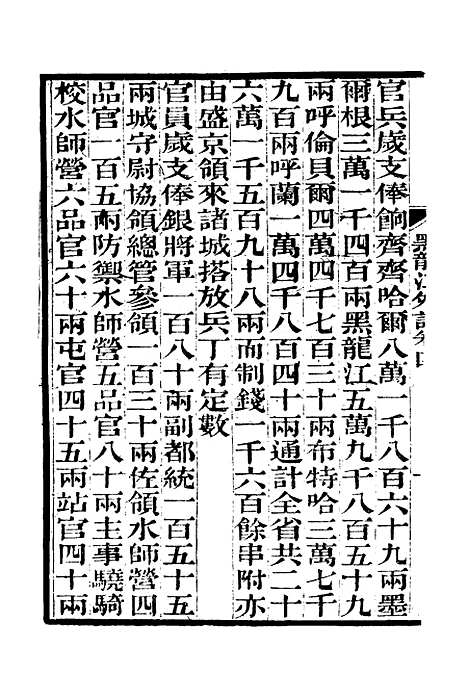 官兵歲支俸餉齊齊哈爾八萬一千八百六十九兩墨
爾根三萬一千四百兩黑龍江五萬九千八百五十九
兩呼倫貝爾四萬四百三十兩布特哈三萬七千
九百兩呼蘭一萬四千八百四十兩通計全省共二十
六萬一千五百九十八兩而制錢一千六百餘串附亦
由盛京領來諸城搭放兵丁有定數
官員歲支俸銀將軍一百八十兩副都統一百五十五
兩城守尉協領總管參領一百三十兩佐領水師營四
品官一百五兩防禦水師營五品官八十兩主事驍騎
校水師營六品官六十兩屯官四十五兩站官四十兩
黑龍江外記卷四